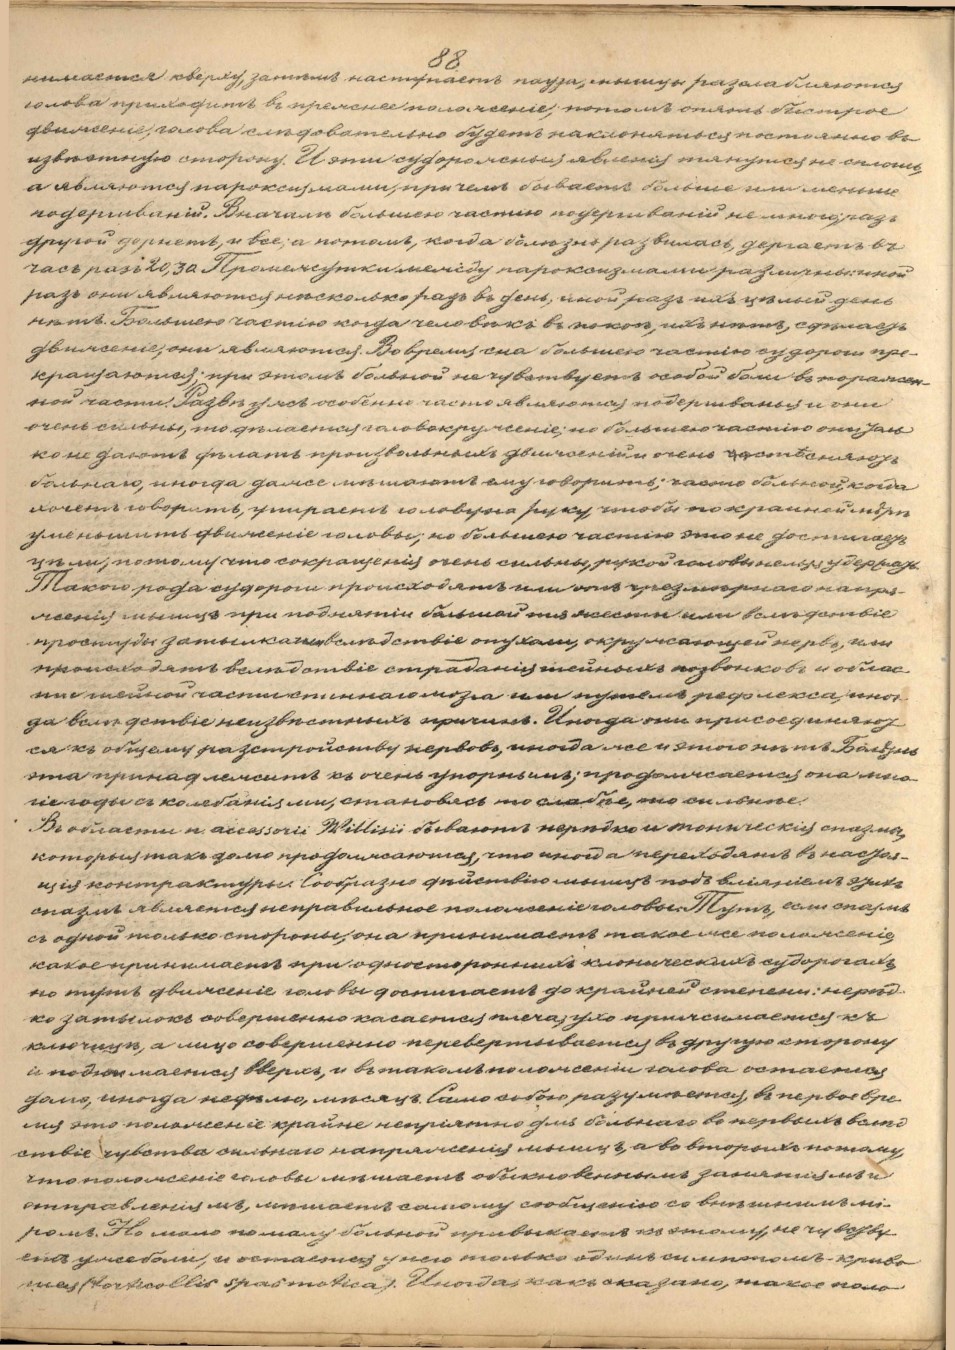 88
нимается кверху, затѣмъ наступаетъ пауза, мышцы разслабляются
голова приходитъ въ прежнее положеніе, потомъ опять быстрое
движеніе; голова слѣдовательно будетъ наклоняться постоянно въ
извѣстную сторону. И эти судорожныя явленія тянутся не сплошь,
а являются пароксизмами, причемъ бываетъ больше или меньше
подергиваній. Вначалѣ большею частію подергиваній немного; разъ
другой дернетъ, и все; а потомъ, когда болѣзнь развилась, дергаетъ въ
часъ разъ 20, 30. Промежутки между пароксизмами различны: иной
разъ они являются нѣсколько разъ въ день, иной разъ ихъ цѣлый день
нѣтъ. Большею частію когда человѣкъ въ покоѣ, ихъ нѣтъ, сдѣлаетъ
движеніе; они являются. Во время сна большею частію судороги пре-
кращаются; при этомъ больной не чувствуетъ особой боли въ поражен-
ной части. Развѣ ужъ особенно часто являются подергиванья и они
очень сильны, то дѣлается головокруженіе; но большею частію они
ко не даютъ дѣлать произвольныхъ движеній и очень стѣсняютъ
больнаго, иногда даже мѣшаютъ ему говорить; часто больной, когда
хочетъ говорить, упираетъ голову на руку, чтобы по крайней мѣрѣ
уменьшить движеніе головы, но большею частію это не достигаетъ
цѣли, потому что сокращенія очень сильны, рукой головы нельзя удержать.
Такого рода судороги происходятъ или отъ чрезмѣрнаго напря-
женія мышцъ при поднятіи большой тяжести или вслѣдствіе
простуды затылка или вслѣдствіе опухоли, окружающей нервъ, или
происходятъ вслѣдствіе страданія шейныхъ позвонковъ и облас-
ти шейной части спиннаго мозга или путемъ рефлекса, иног-
да вслѣдствіе неизвѣстныхъ причинъ. Иногда они присоединяют
ся къ общему разстройству нервовъ, иногда же и этого нѣтъ. Болѣзнь
эта принадлежитъ къ очень упорнымъ; продолжается она мно-
гіе годы съ колебаніями, становясь то слабѣе, то сильнѣе.
Въ области n. accessorii Willisii бываютъ нерѣдко и тоническія спазмы,
которыя такъ долго продолжаются, что иногда переходятъ въ настоя-
щія контрактуры. Сообразно дѣйствію мышцъ подъ вліяніемъ этихъ
спазмъ является неправильное положеніе головы. Тутъ, если спазмъ
съ одной только стороны, она принимаетъ такое же положеніе,
какое принимаетъ при одностороннихъ клоническихъ судорогахъ,
но тутъ движеніе головы достигаетъ до крайней степени: нерѣд-
ко затылокъ совершенно касается плеча, ухо прижимается къ
ключицѣ, а лицо совершенно перевертывается въ другую сторону
и поднимается вверхъ, и въ такомъ положеніи голова остается
долго, иногда недѣлю, мѣсяцъ. Само собою разумѣется, въ первое вре-
мя это положеніе крайне непріятно для больнаго во первыхъ вслѣд
ствіе чувства сильнаго напряженія мышцъ, а во вторыхъ потому,
что положеніе головы мѣшаетъ обыкновеннымъ занятіямъ и
отправленіямъ, мѣшаетъ самому сообщенію со внѣшнимъ мі-
ромъ. Но мало по малу больной привыкаетъ къ этому, не чувству
етъ уже боли, и остается у него только одинъ симптомъ - криво
шея (torticollis spasmotica). Иногда, какъ сказано, такое поло-